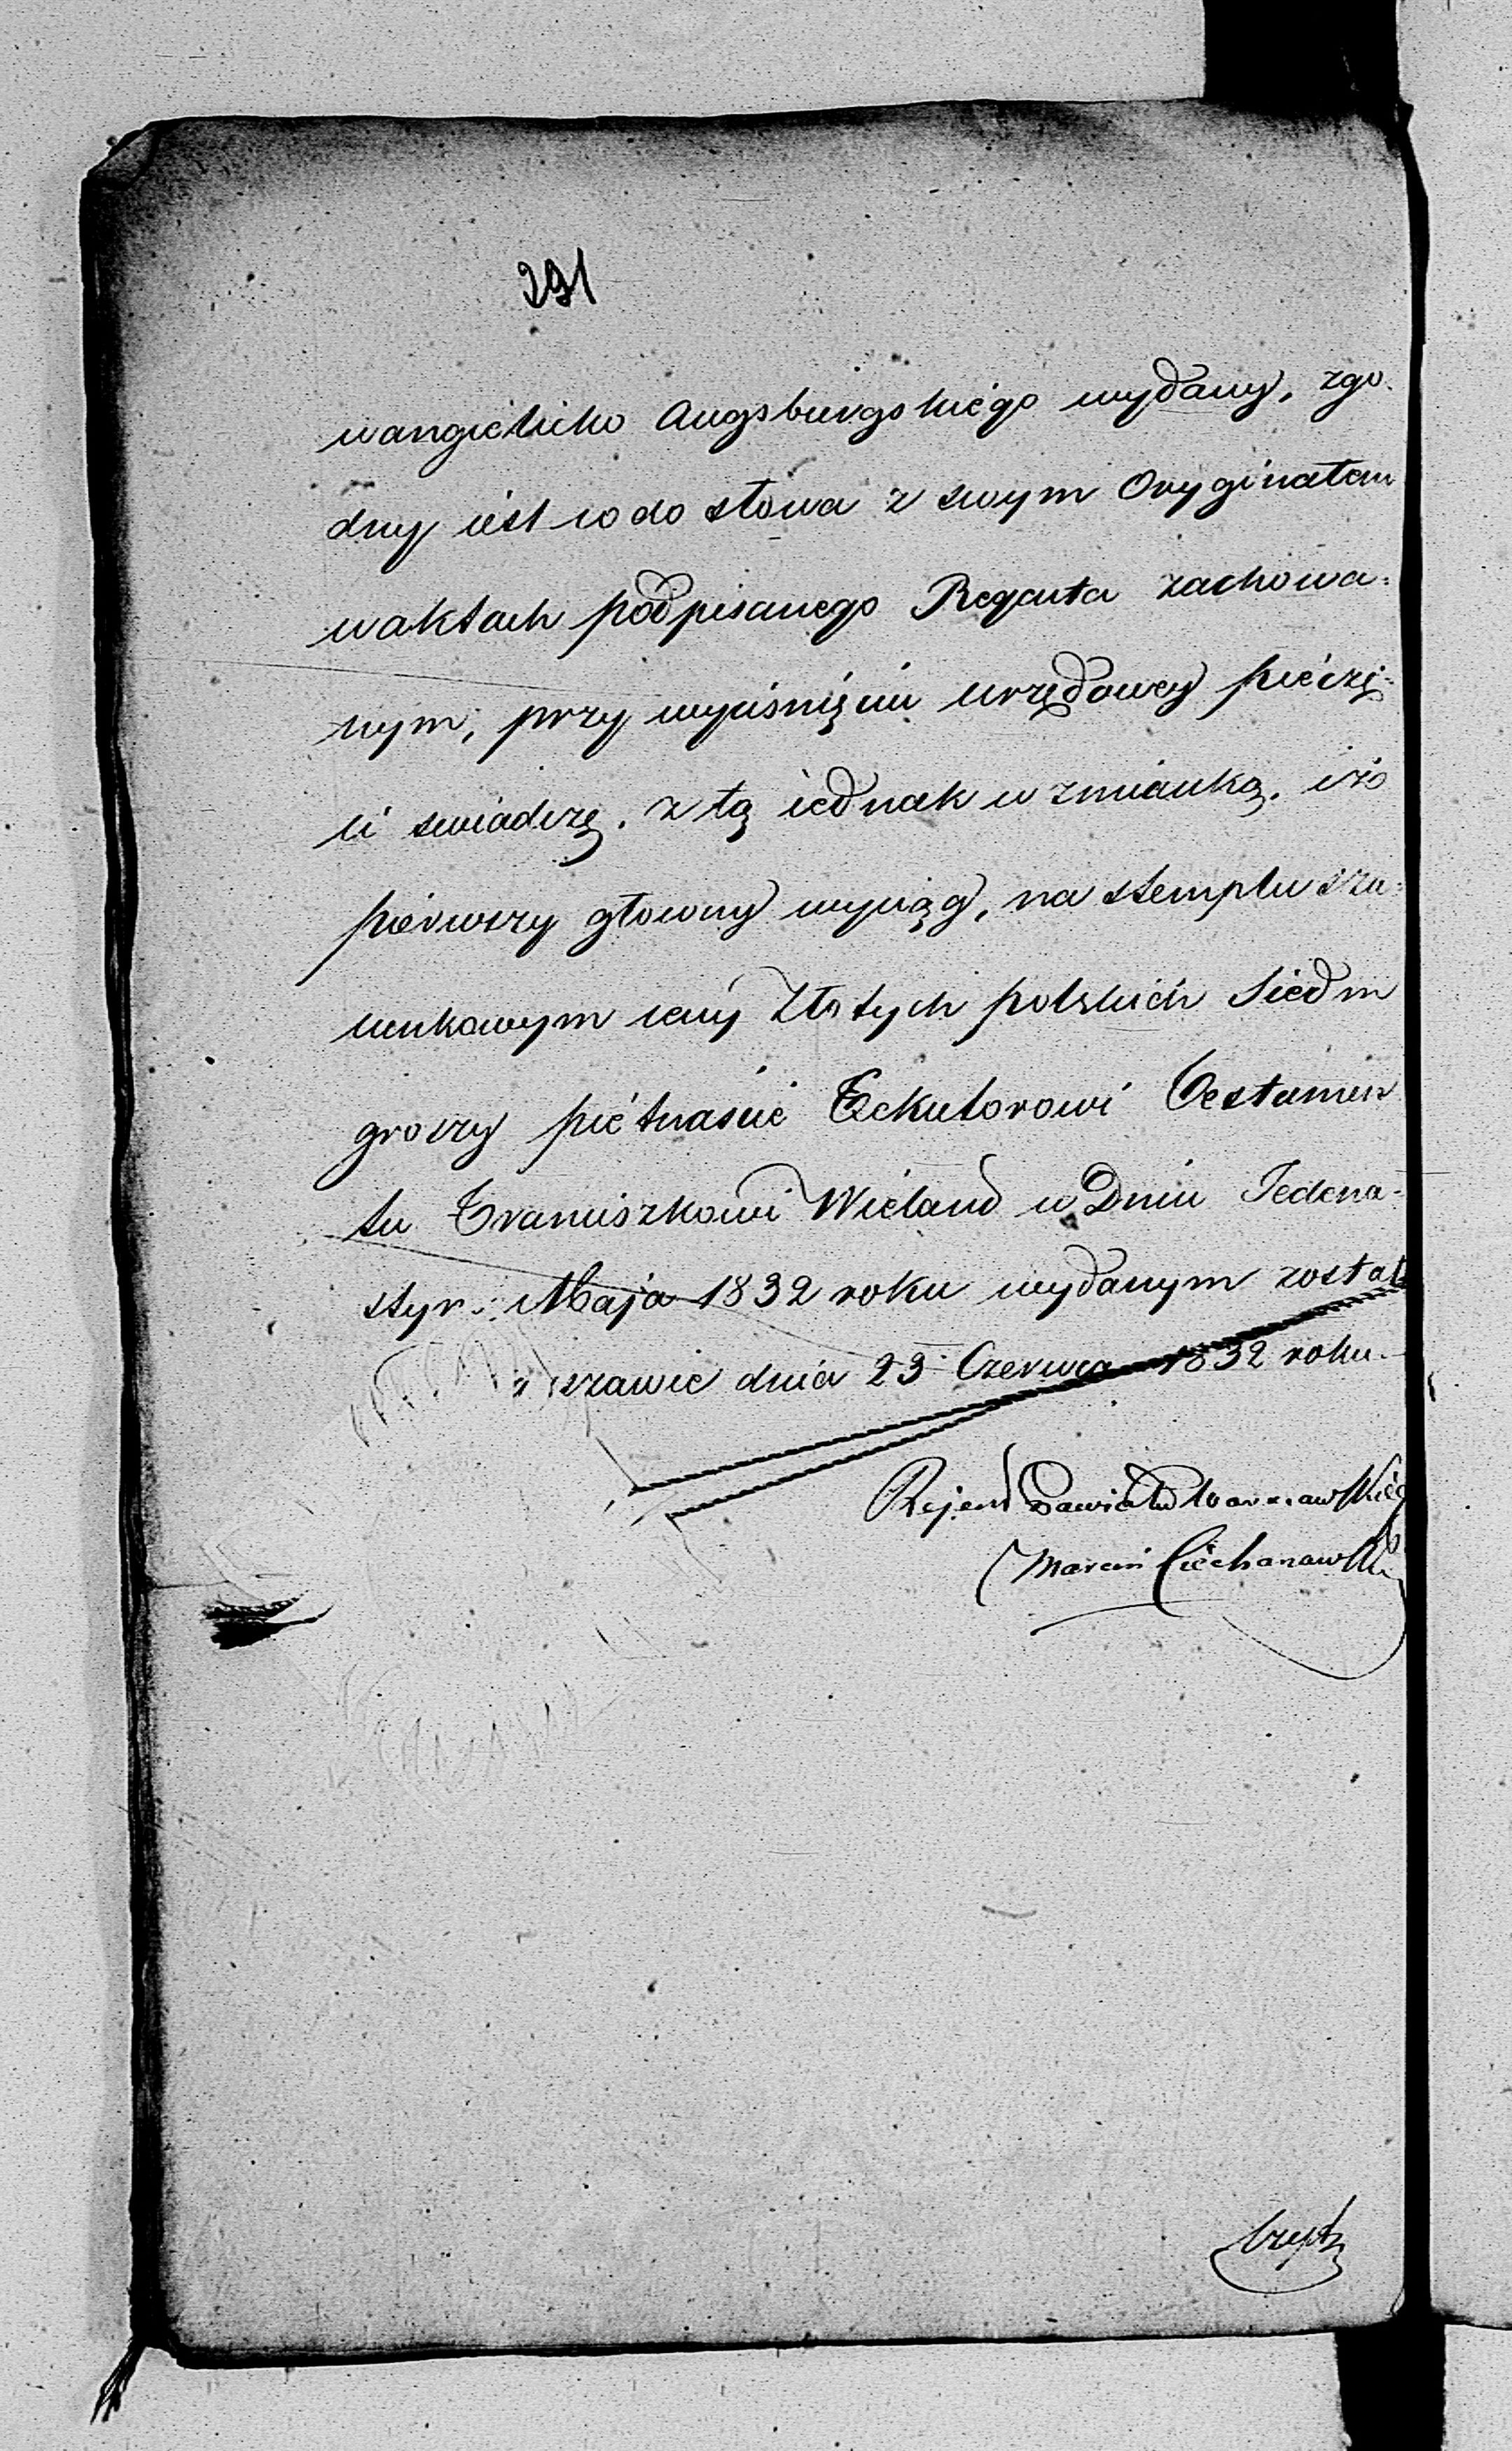 291
wangielicko Augsburgskiégo wydany, zgo-
dny iest co do słowa z swym Oryginałem
w aktach podpisanego Regenta zachowa-
nym, przy wyciśnięciu urzędowey piéczę-
ci swiadczę, z tą iednak wzmianką, iżo
piérwszy głowny wyciąg, na stemplu sza-
cunkowym ceny Złotych polskich Siedm
groszy piétnaście Exekutorowi Testamen
tu Franciszkowi Wieland w Dniu Jedena-
stym Maja 1832 roku wydanym został
szawie dnia 23 Czerwca 1832 roku.
Rejent Powiatu Warszawskiégo
Marcin Ciéchanowski